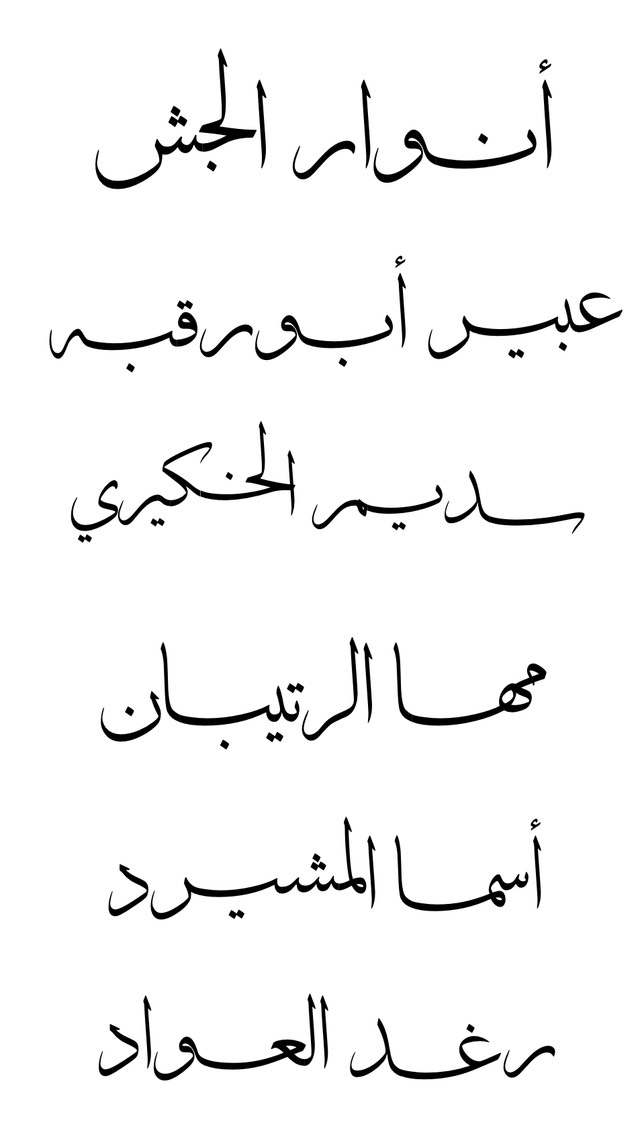 أنوار الجش
عبير أبورقبه
سديم الخكيري
مها الرتيبان
أسما المشيرد
رغد العواد